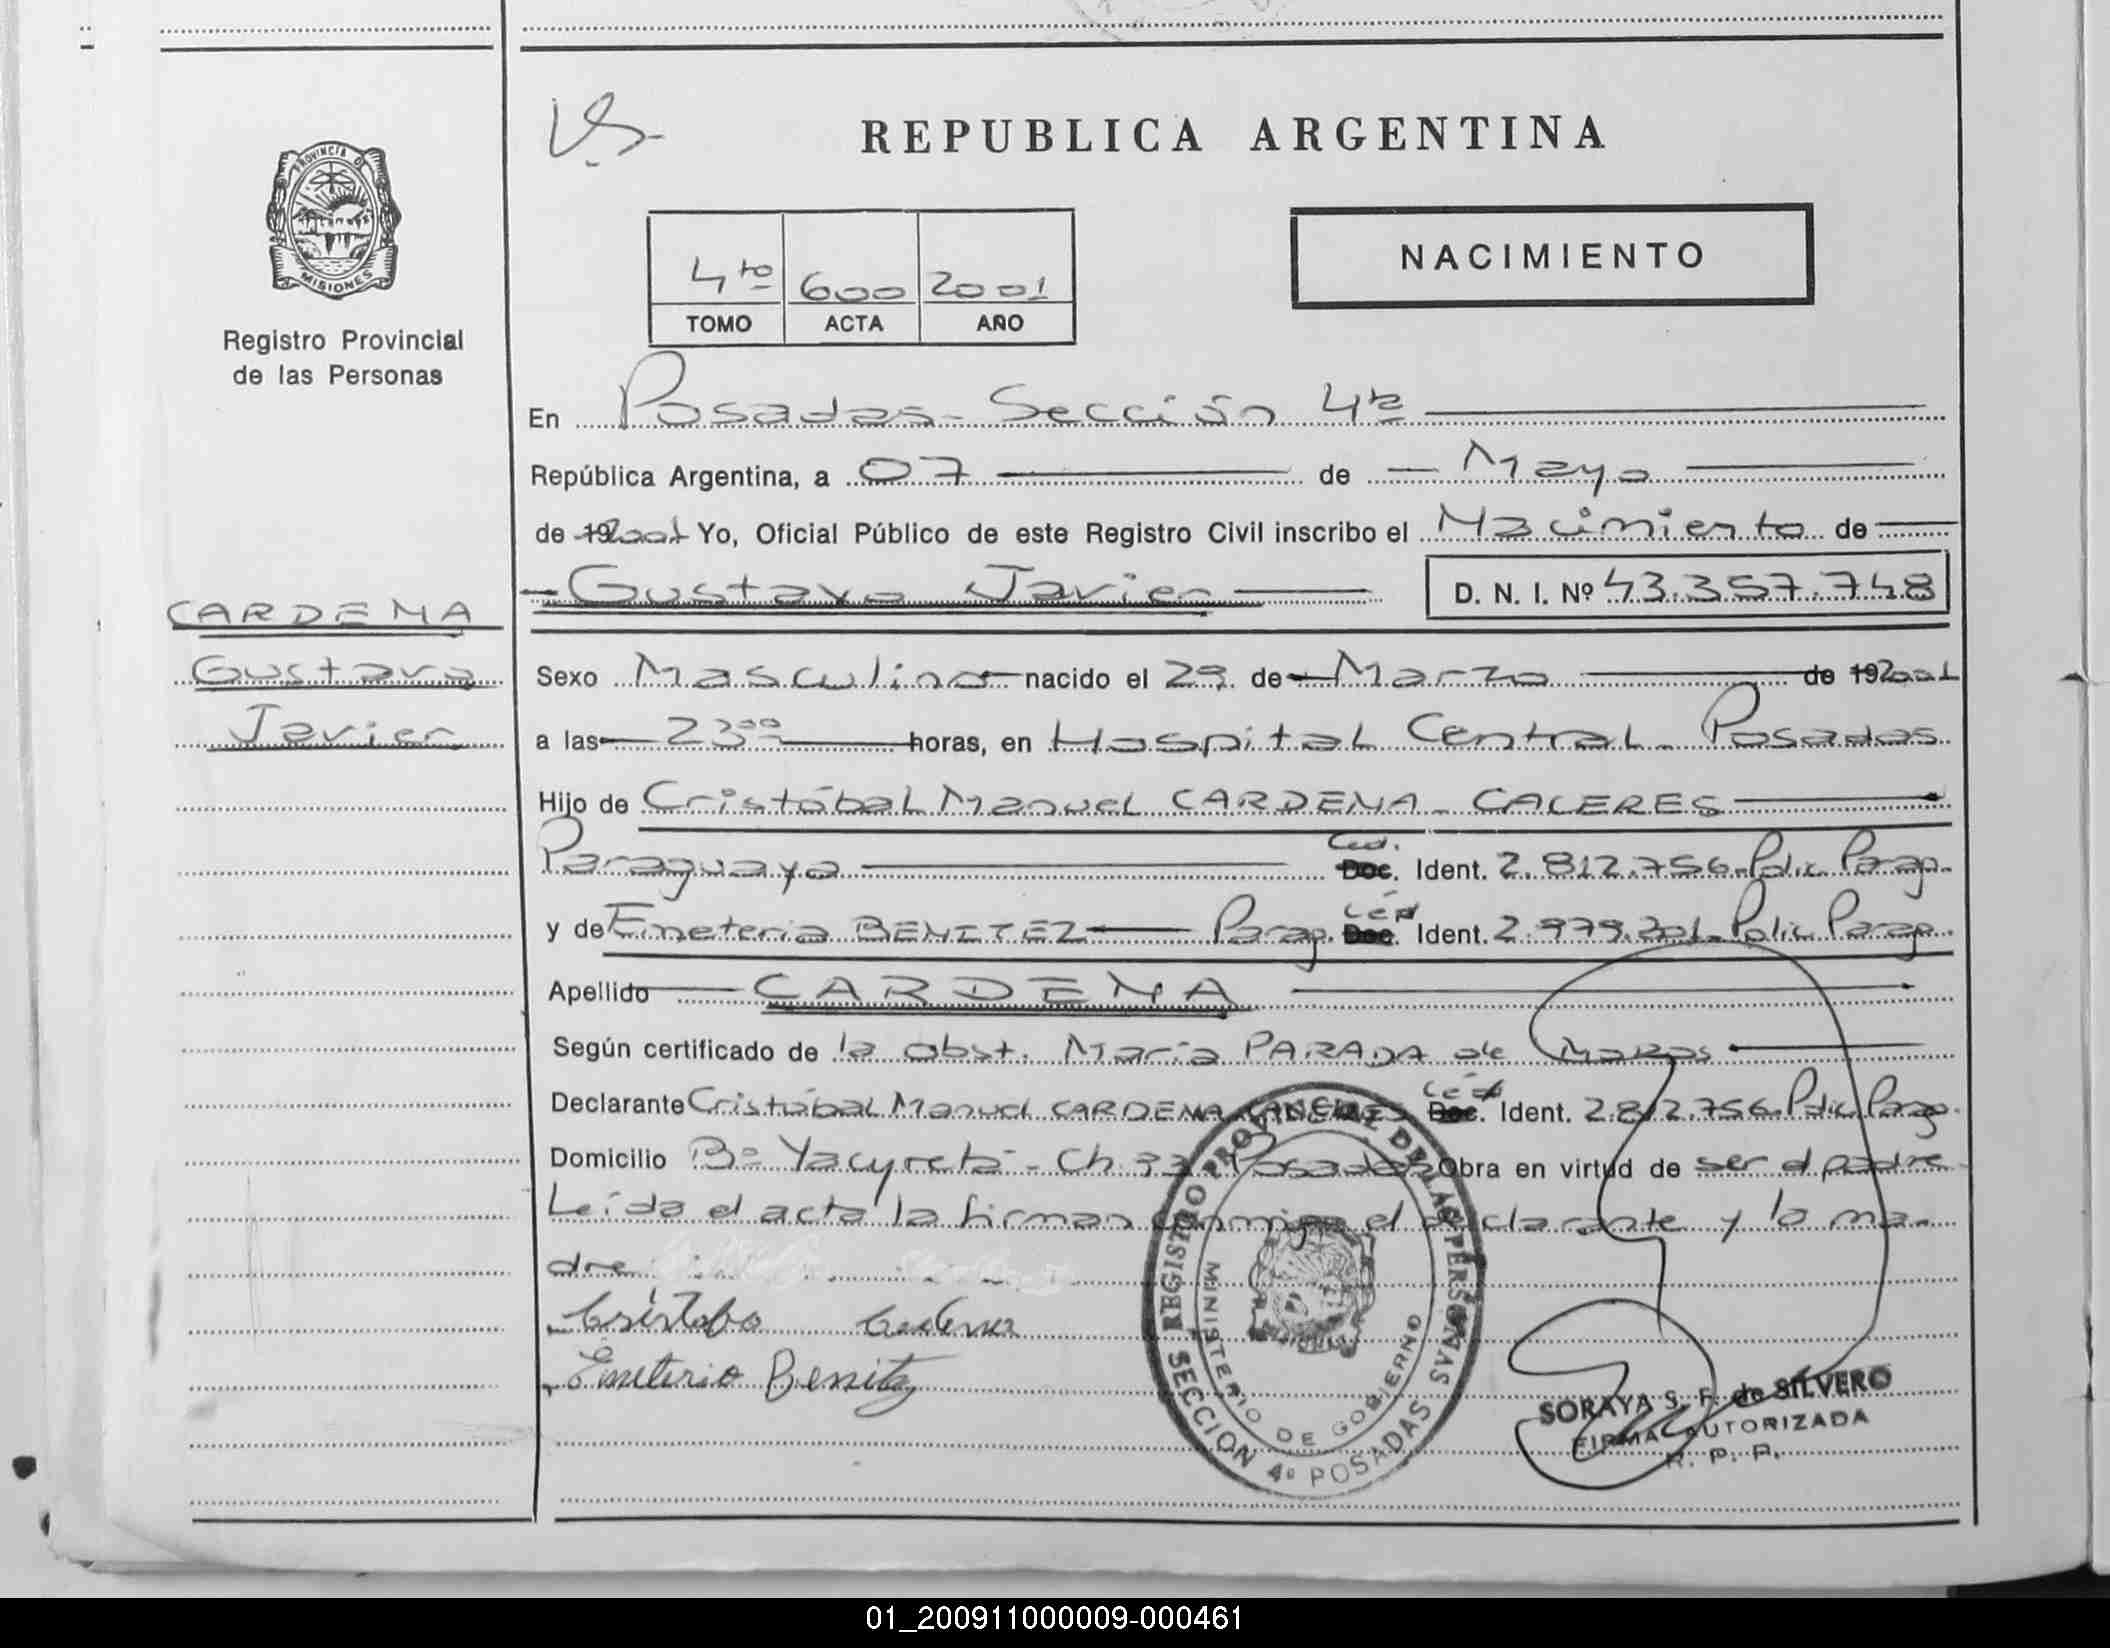 PROVINCIA D
MISIONES
Registro Provincial
de las Personas
CARDENA
Gustavo
Javier
V.S.
REPUBLICA ARGENTINA
4to 600 2001
TOMO ACTA AÑO
NACIMIENTO
En Posadas - Sección 4ta
República Argentina, a 07 de Mayo
de 192001 Yo, Oficial Público de este Registro Civil inscribo el Nacimiento de
Gustavo Javier D. N. I. Nº 43.357.748
Sexo Masculino nacido el 29 de Marzo de 192001
a las 23 00 horas, en Hospital Central - Posadas
Hijo de Cristóbal Manuel CARDENA - CACERES
Paraguayo Ced. Doc. Ident. 2.812.756 - Polic Parag.
y de Emeteria BENITEZ Parag. Céd Doc. Ident. 2.979.201 - Polic Parag.
Apellido CARDENA
Según certificado de la obst. María PARADA de
Declarante Cristóbal Manuel CARDENA CACERES Céd Doc. Ident. 2.812.756 Polic Parag.
Domicilio Bº Yacyretá - Ch Posadas Obra en virtud de ser el padre
Leída el acta la firman conmigo el declarante y la ma-
dre
Cristobo Cardena
Emeterio Benitez
REGISTRO PROVINCIAL DE LAS PERSONAS
MINISTERIO DE GOBIERNO
SECCION 4º POSADAS
SORAYA S. F. de SILVERO
FIRMA AUTORIZADA
R. P. P.
01_200911000009-000461